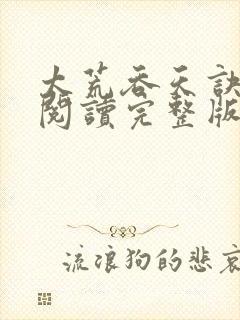 大荒吞天訣
閱讀完整版
流浪狗的悲哀